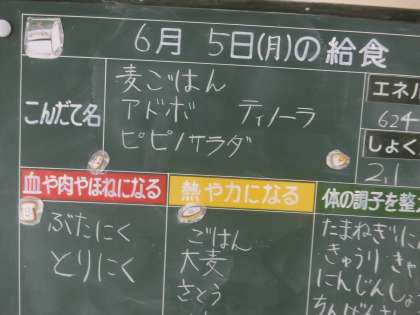 6月 5日(月)の給食
こんだて名
麦ごはん
アドボ ティノーラ
ピピノサラダ
エネル
624
しょく
2.1
血や肉やほねになる
ぶたにく
とりにく
熱や力になる
ごはん
大麦
さとう
体の調子を整
たまねぎ に
きゅうり きゃ
にんじん しょ
ちんげんさ